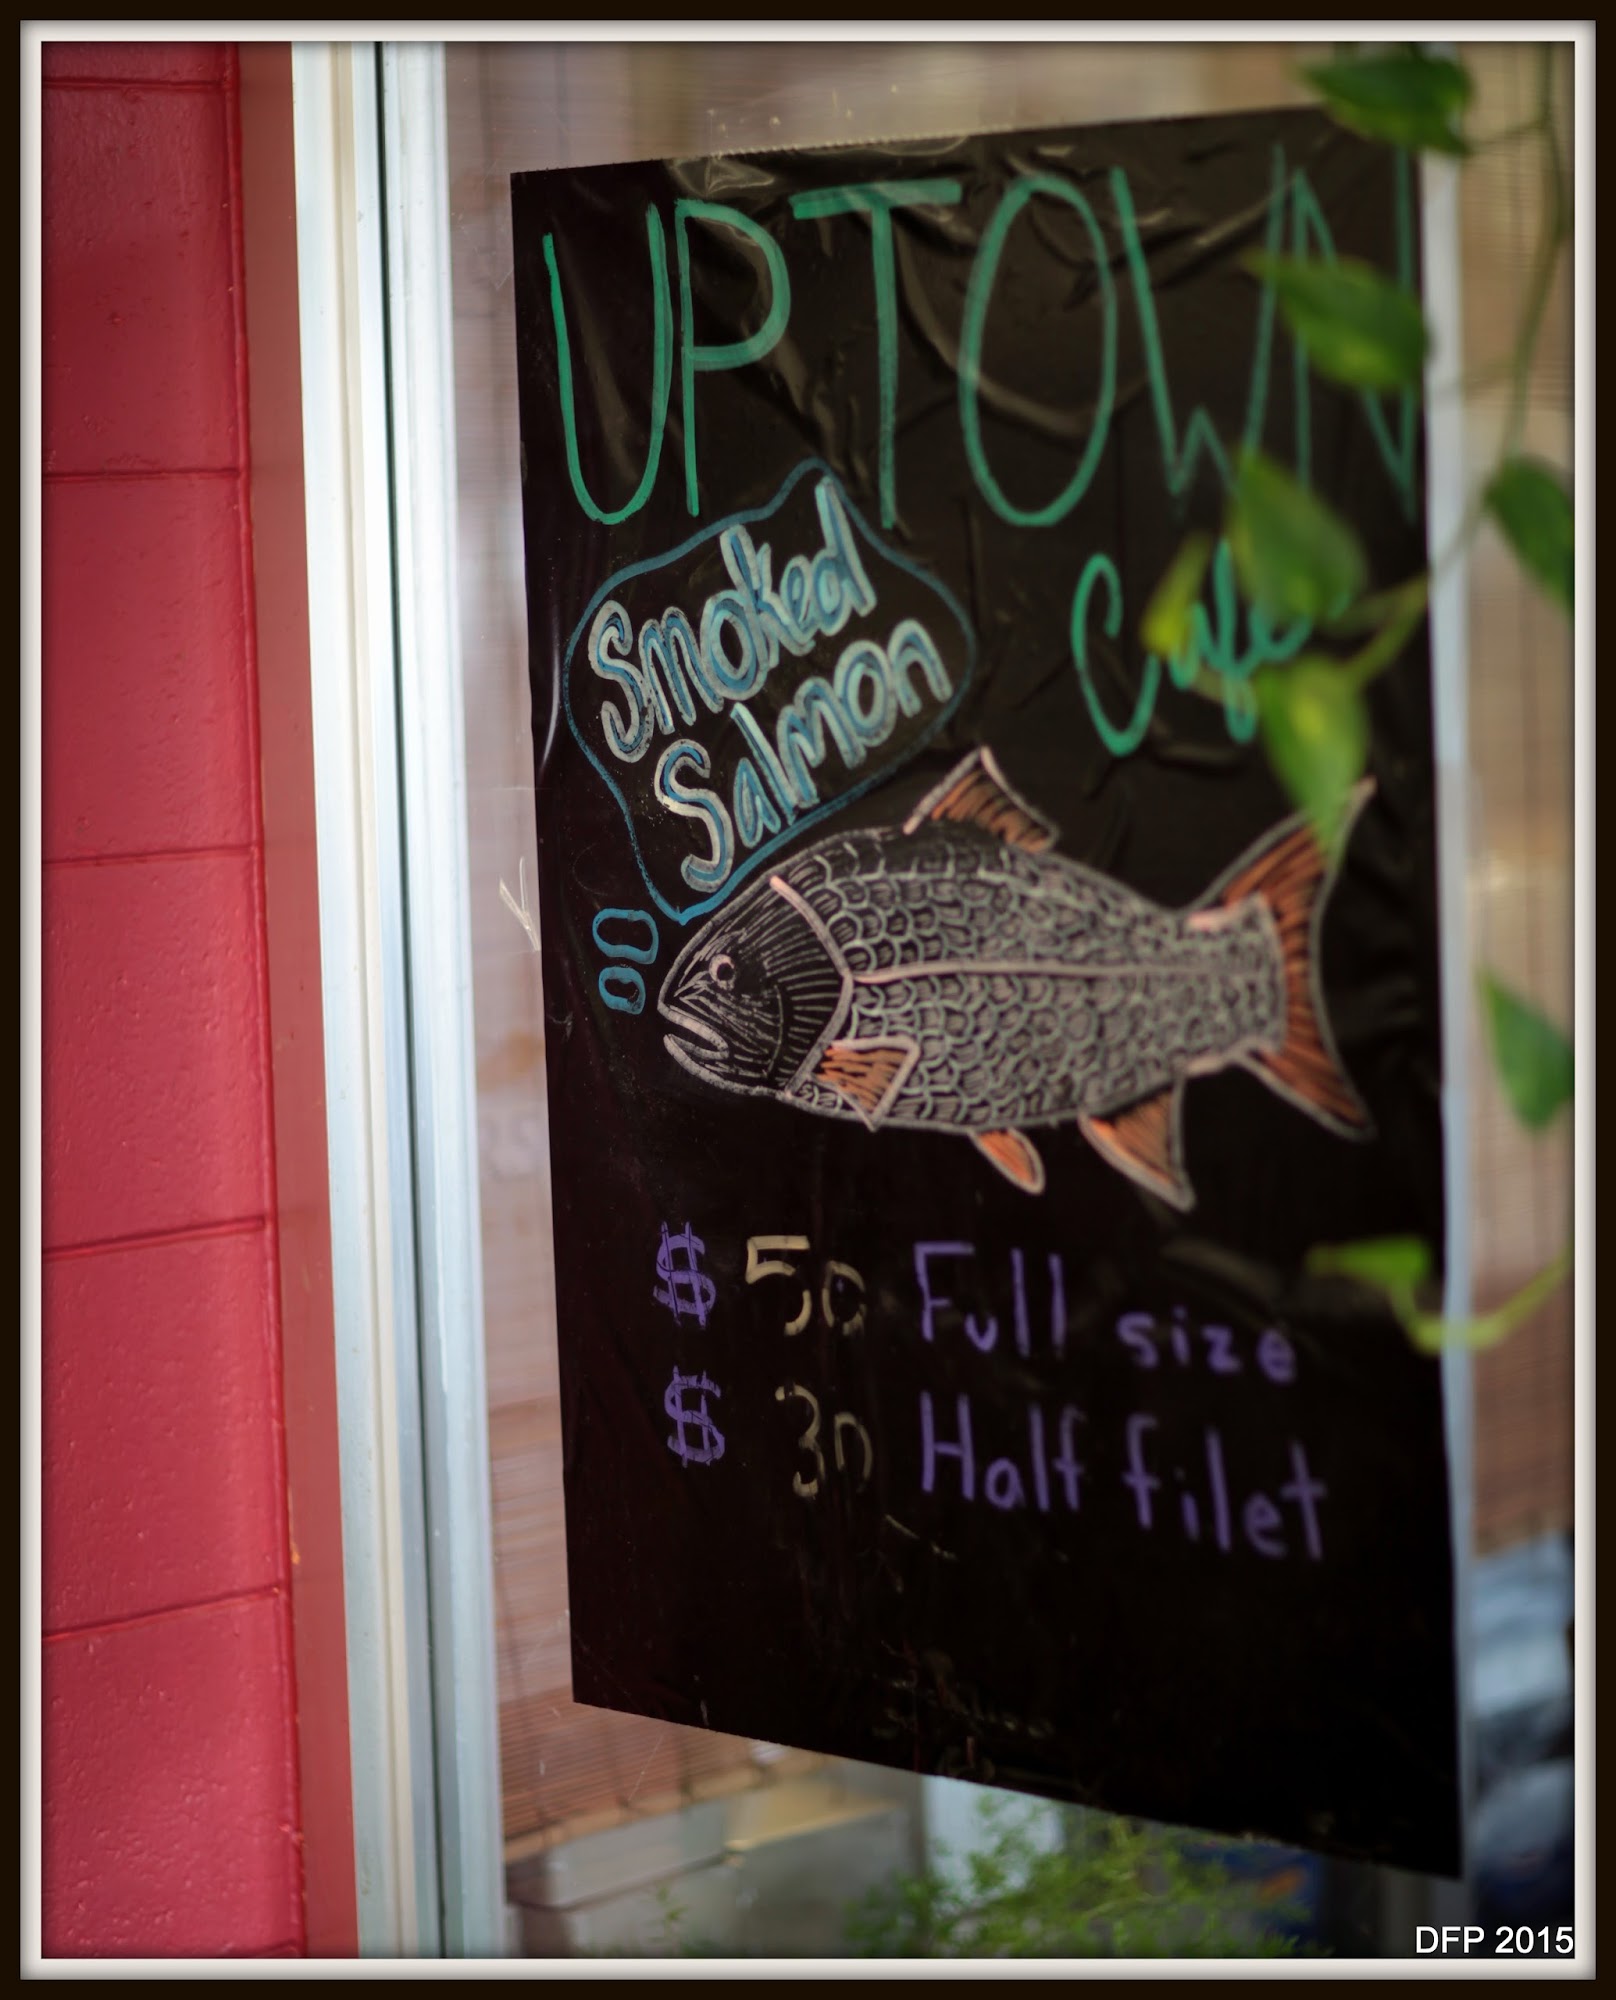 UPTOWN
Cafe
Smoked
Salmon
$ 50 Full size
$ 30 Half filet
DFP 2015